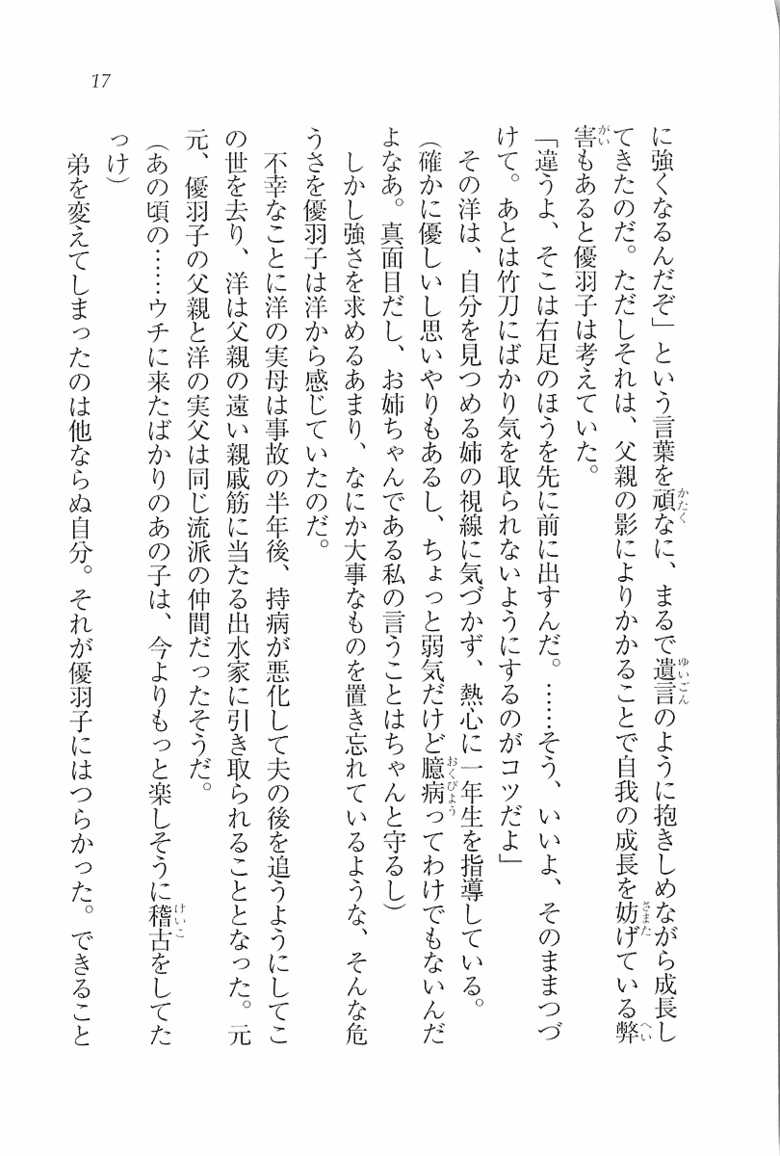 17
に強くなるんだぞ」という言葉を頑なに、まるで遺言のように抱きしめながら成長し
てきたのだ。ただしそれは、父親の影によりかかることで自我の成長を妨げている弊
害もあると優羽子は考えていた。
「違うよ、そこは右足のほうを先に前に出すんだ。……そう、いいよ、そのままつづ
けて。あとは竹刀にばかり気を取られないようにするのがコツだよ」
その洋は、自分を見つめる姉の視線に気づかず、熱心に一年生を指導している。
(確かに優しいし思いやりもあるし、ちょっと弱気だけど臆病ってわけでもないんだ
よなあ。真面目だし、お姉ちゃんである私の言うことはちゃんと守るし)
しかし強さを求めるあまり、なにか大事なものを置き忘れているような、そんな危
うさを優羽子は洋から感じていたのだ。
不幸なことに洋の実母は事故の半年後、持病が悪化して夫の後を追うようにしてこ
の世を去り、洋は父親の遠い親戚筋に当たる出水家に引き取られることとなった。元
元、優羽子の父親と洋の実父は同じ流派の仲間だったそうだ。
(あの頃の……ウチに来たばかりのあの子は、今よりもっと楽しそうに稽古をしてた
っけ)
弟を変えてしまったのは他ならぬ自分。それが優羽子にはつらかった。できること